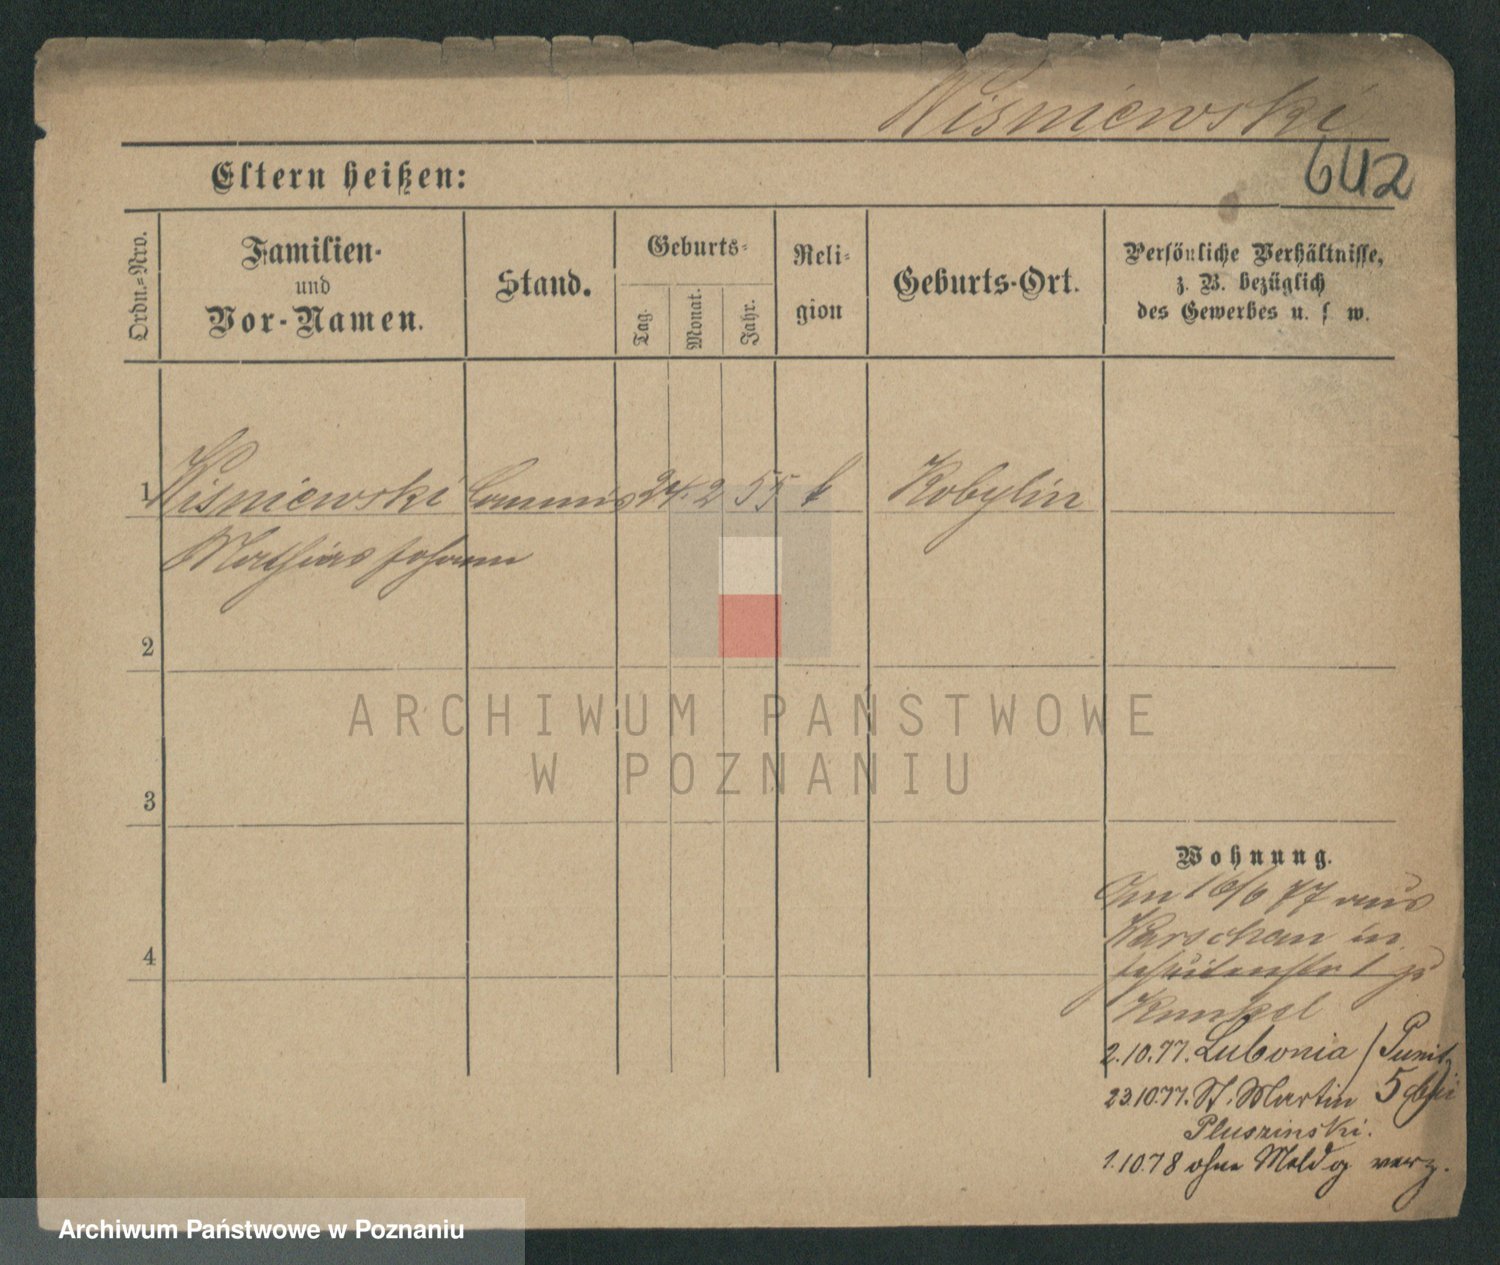 Wisniewski
642
Eltern heißen:
Ordn.-Nro.
Familien-
und
Vor-Namen.
Stand.
Geburts-
Tag.
Monat.
Jahr.
Reli-
gion
Geburts-Ort.
Persönliche Verhältnisse,
z. B. bezüglich
des Gewerbes u. s w.
1 Wisniewski Commis 24. 2 55 k Kobylin
Mathias Johann
2
3
4
ARCHIWUM PAŃSTWOWE
W POZNANIU
Wohnung.
Am 16/6 77 aus
in
Jesuitenstr 1 zu
Kunkel
2.10.77. Lubonia / Punitz
23.10.77. St. Martin 5 bei
Pluszinski.
1.10.78 ohne Meldg verz.
Archiwum Państwowe w Poznaniu